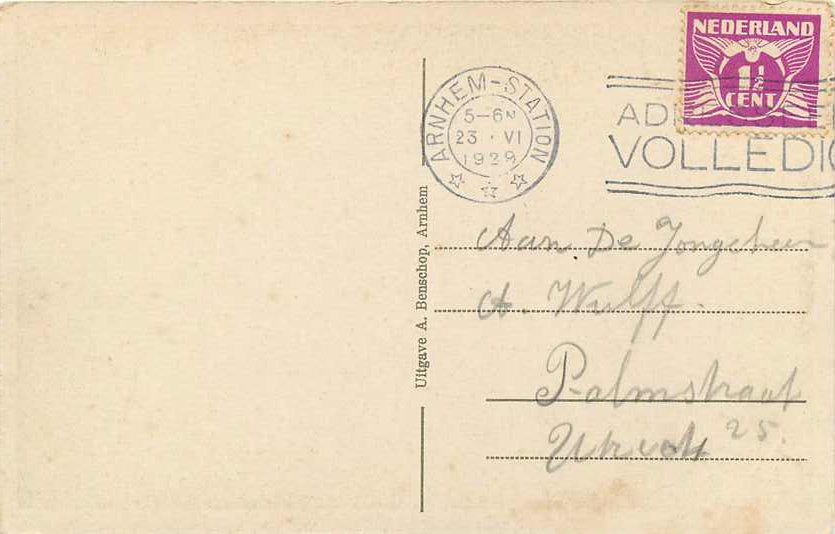 NEDERLAND
1½
CENT
ARNHEM-STATION
5-6N
23 · VI
1929
AD
VOLLEDIG
Uitgave A. Benschop, Arnhem
Aan De Jongeheer
A. Wulff.
Palmstraat
25.
Utrecht